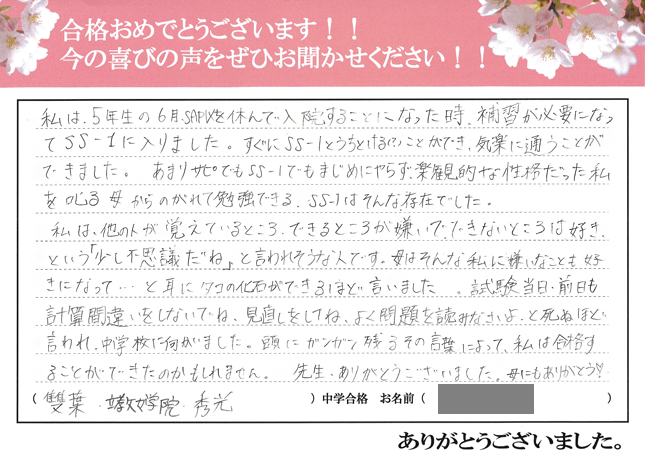 合格おめでとうございます！！
今の喜びの声をぜひお聞かせください！！
私は、5年生の6月、SAPIXを休んで入院することになった時、補習が必要になっ
てSS-1に入りました。すぐにSS-1とうちとける(?)ことができ、気楽に通うことが
できました。 あまりサピでもSS-1でもまじめにやらず、楽観的な性格だった私
を叱る母からのがれて勉強できる、SS-1はそんな存在でした。
私は、他の人が覚えているところ、できるところが嫌いで、できないところは好き、
という「少し不思議だね」と言われそうな人です。母はそんな私に嫌いなことも好
きになって…と耳にタコの化石ができるほど言いました。試験当日・前日も
計算間違いをしないでね、見直しをしてね、よく問題を読みなさいよ、と死ぬほど
言われ、中学校に向かいました。頭にガンガン残るその言葉によって、私は合格す
ることができたのかもしれません。 先生、ありがとうございました。母にもありがとう!
（雙葉・淑徳学院・秀光 ）中学合格 お名前（ ）
ありがとうございました。